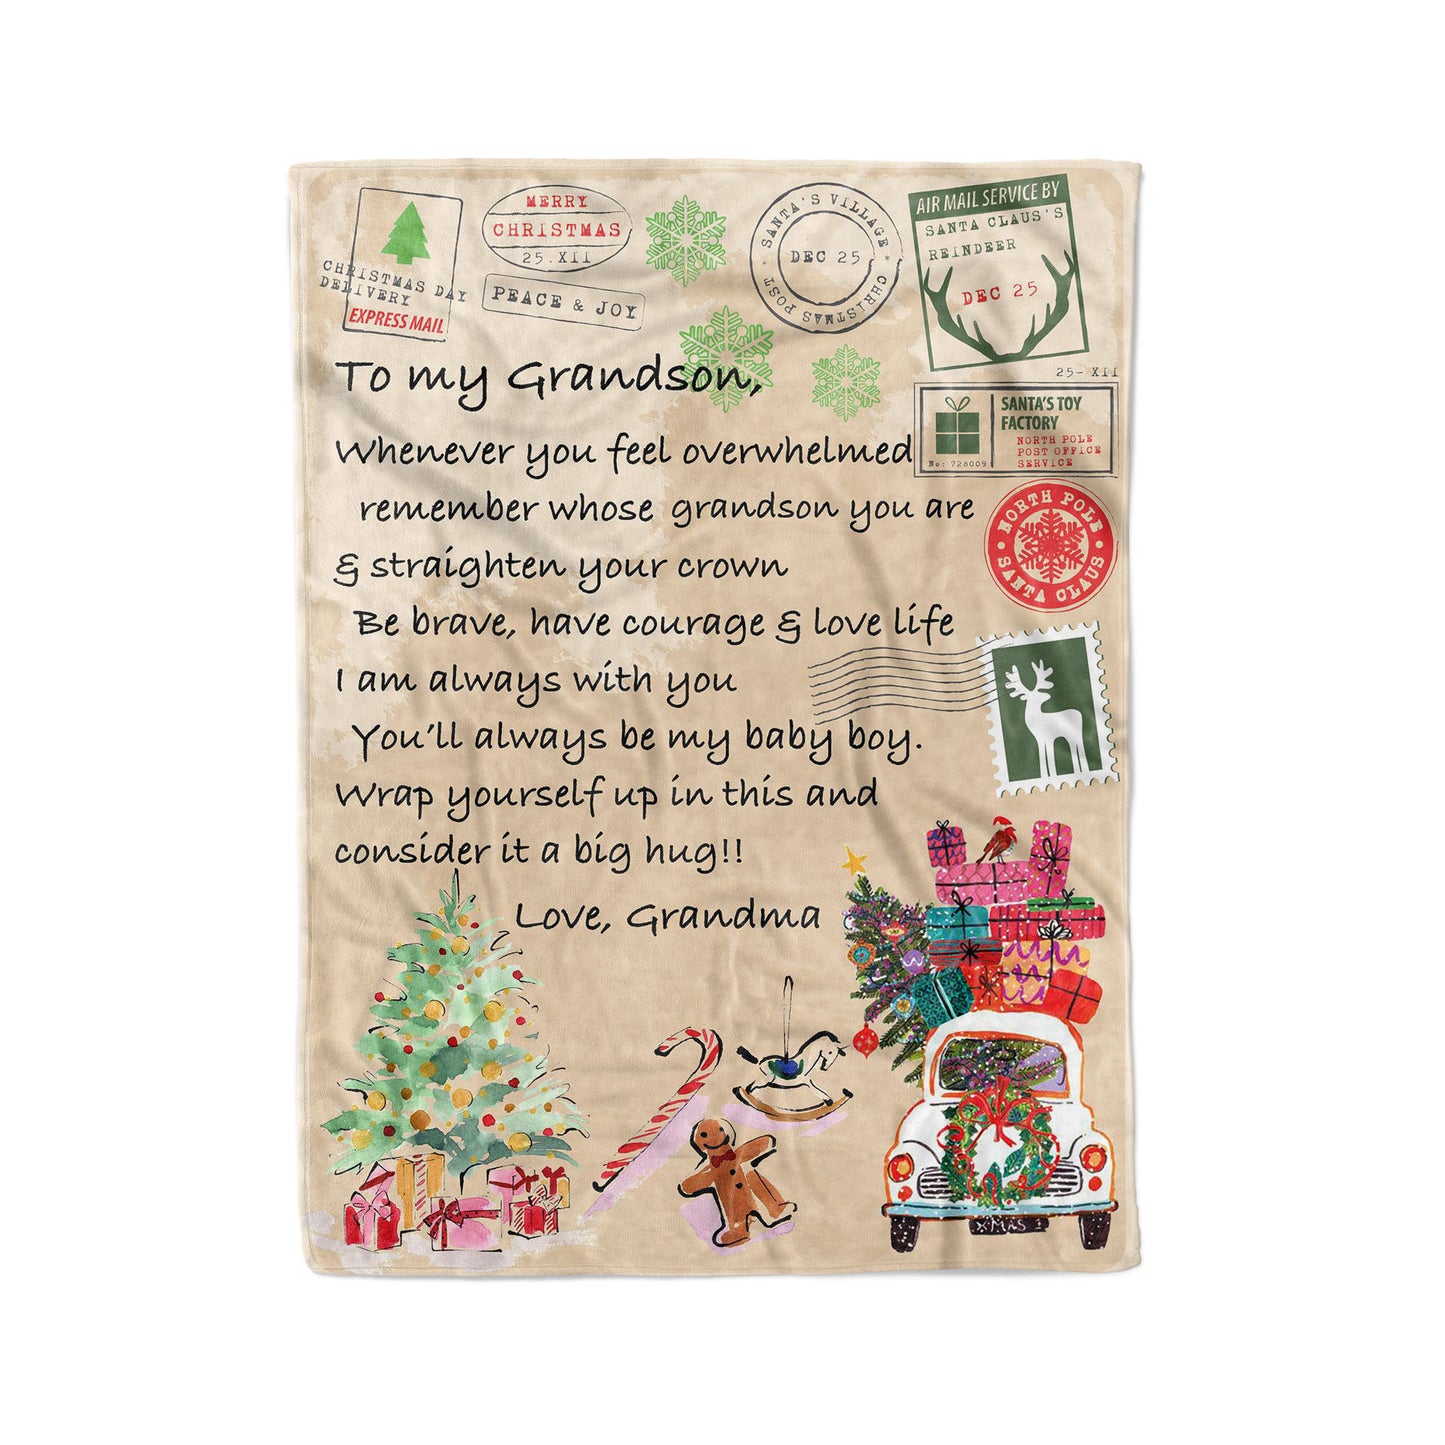 CHRISTMAS DAY
DELIVERY
EXPRESS MAIL
MERRY
CHRISTMAS
25.XII
PEACE & JOY
SANTA'S VILLAGE * CHRISTMAS POST *
DEC 25
AIR MAIL SERVICE BY
SANTA CLAUS'S
REINDEER
DEC 25
25- XII
SANTA'S TOY
FACTORY
NORTH POLE
POST OFFICE
SERVICE
No: 728009
NORTH POLE
SANTA CLAUS
To my Grandson,
Whenever you feel overwhelmed
remember whose grandson you are
& straighten your crown
Be brave, have courage & love life
I am always with you
You'll always be my baby boy.
Wrap yourself up in this and
consider it a big hug!!
Love, Grandma
X-MAS 1